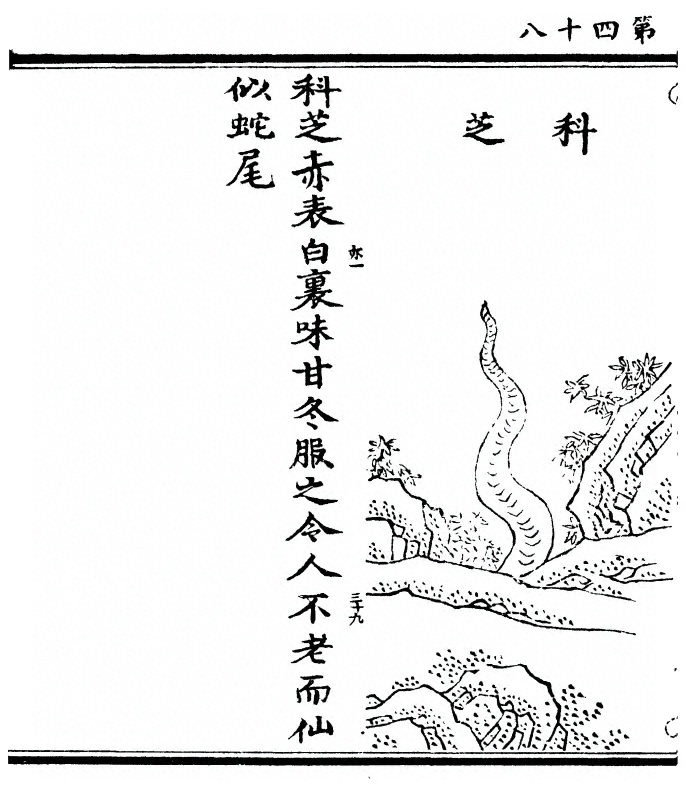 第四十八
科芝
三十九
科芝赤表白裏味甘冬服之令人不老而仙
似蛇尾